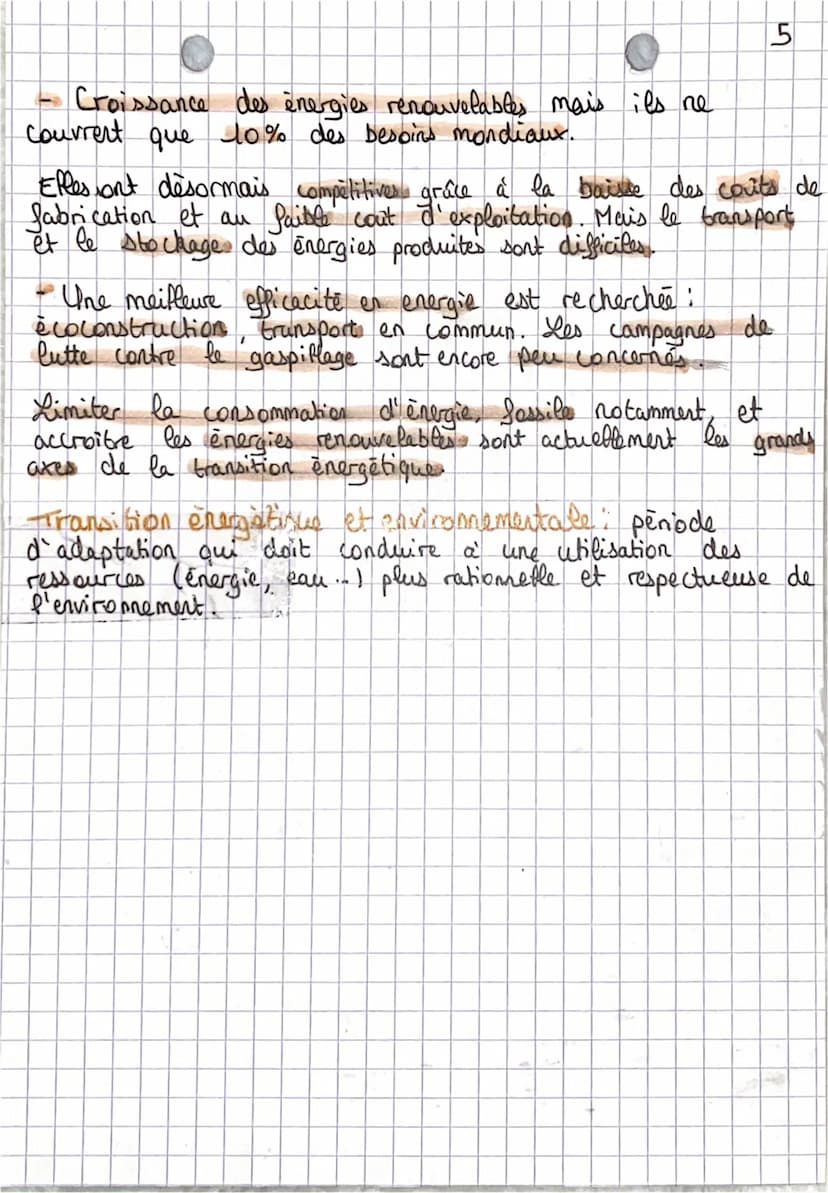 5
- Croissance des énergies renouvelables mais ils ne
couvrent que 10% des besoins mondiaux.
Elles sont désormais compétitives grâce à la baisse des coûts de
fabrication et au faible coût d'exploitation. Mais le transport
et le stockage des énergies produites sont difficiles.
- Une meilleure efficacité en energie est recherchée :
écoconstruction, transport en commun. Les campagnes de
lutte contre le gaspillage sont encore peu concernés.
Limiter la consommation d'énergie, fossile notamment, et
accroitre les énergies renouvelables sont actuellement les grands
axes de la transition énergétique.
Transition énergétique et environnementale : période
d'adaptation qui doit conduire à une utilisation des
ressources (énergie, eau ...) plus rationnelle et respectueuse de
l'environnement.